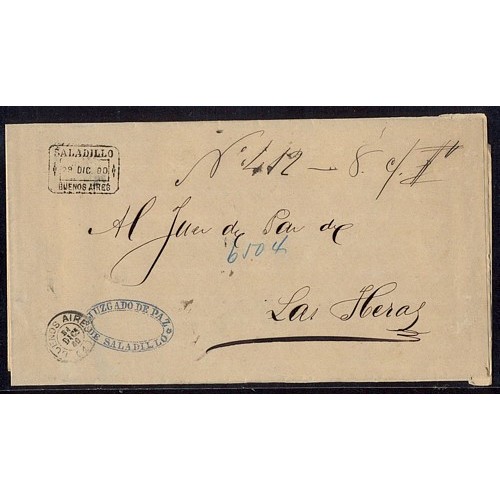 SALADILLO
29 DIC. 90
BUENOS AIRES
No. 412 - 8. c/
Al Juez de Paz de
6504
Las Heras
JUZGADO DE PAZ
DE SALADILLO
BUENOS AIRES
DIC